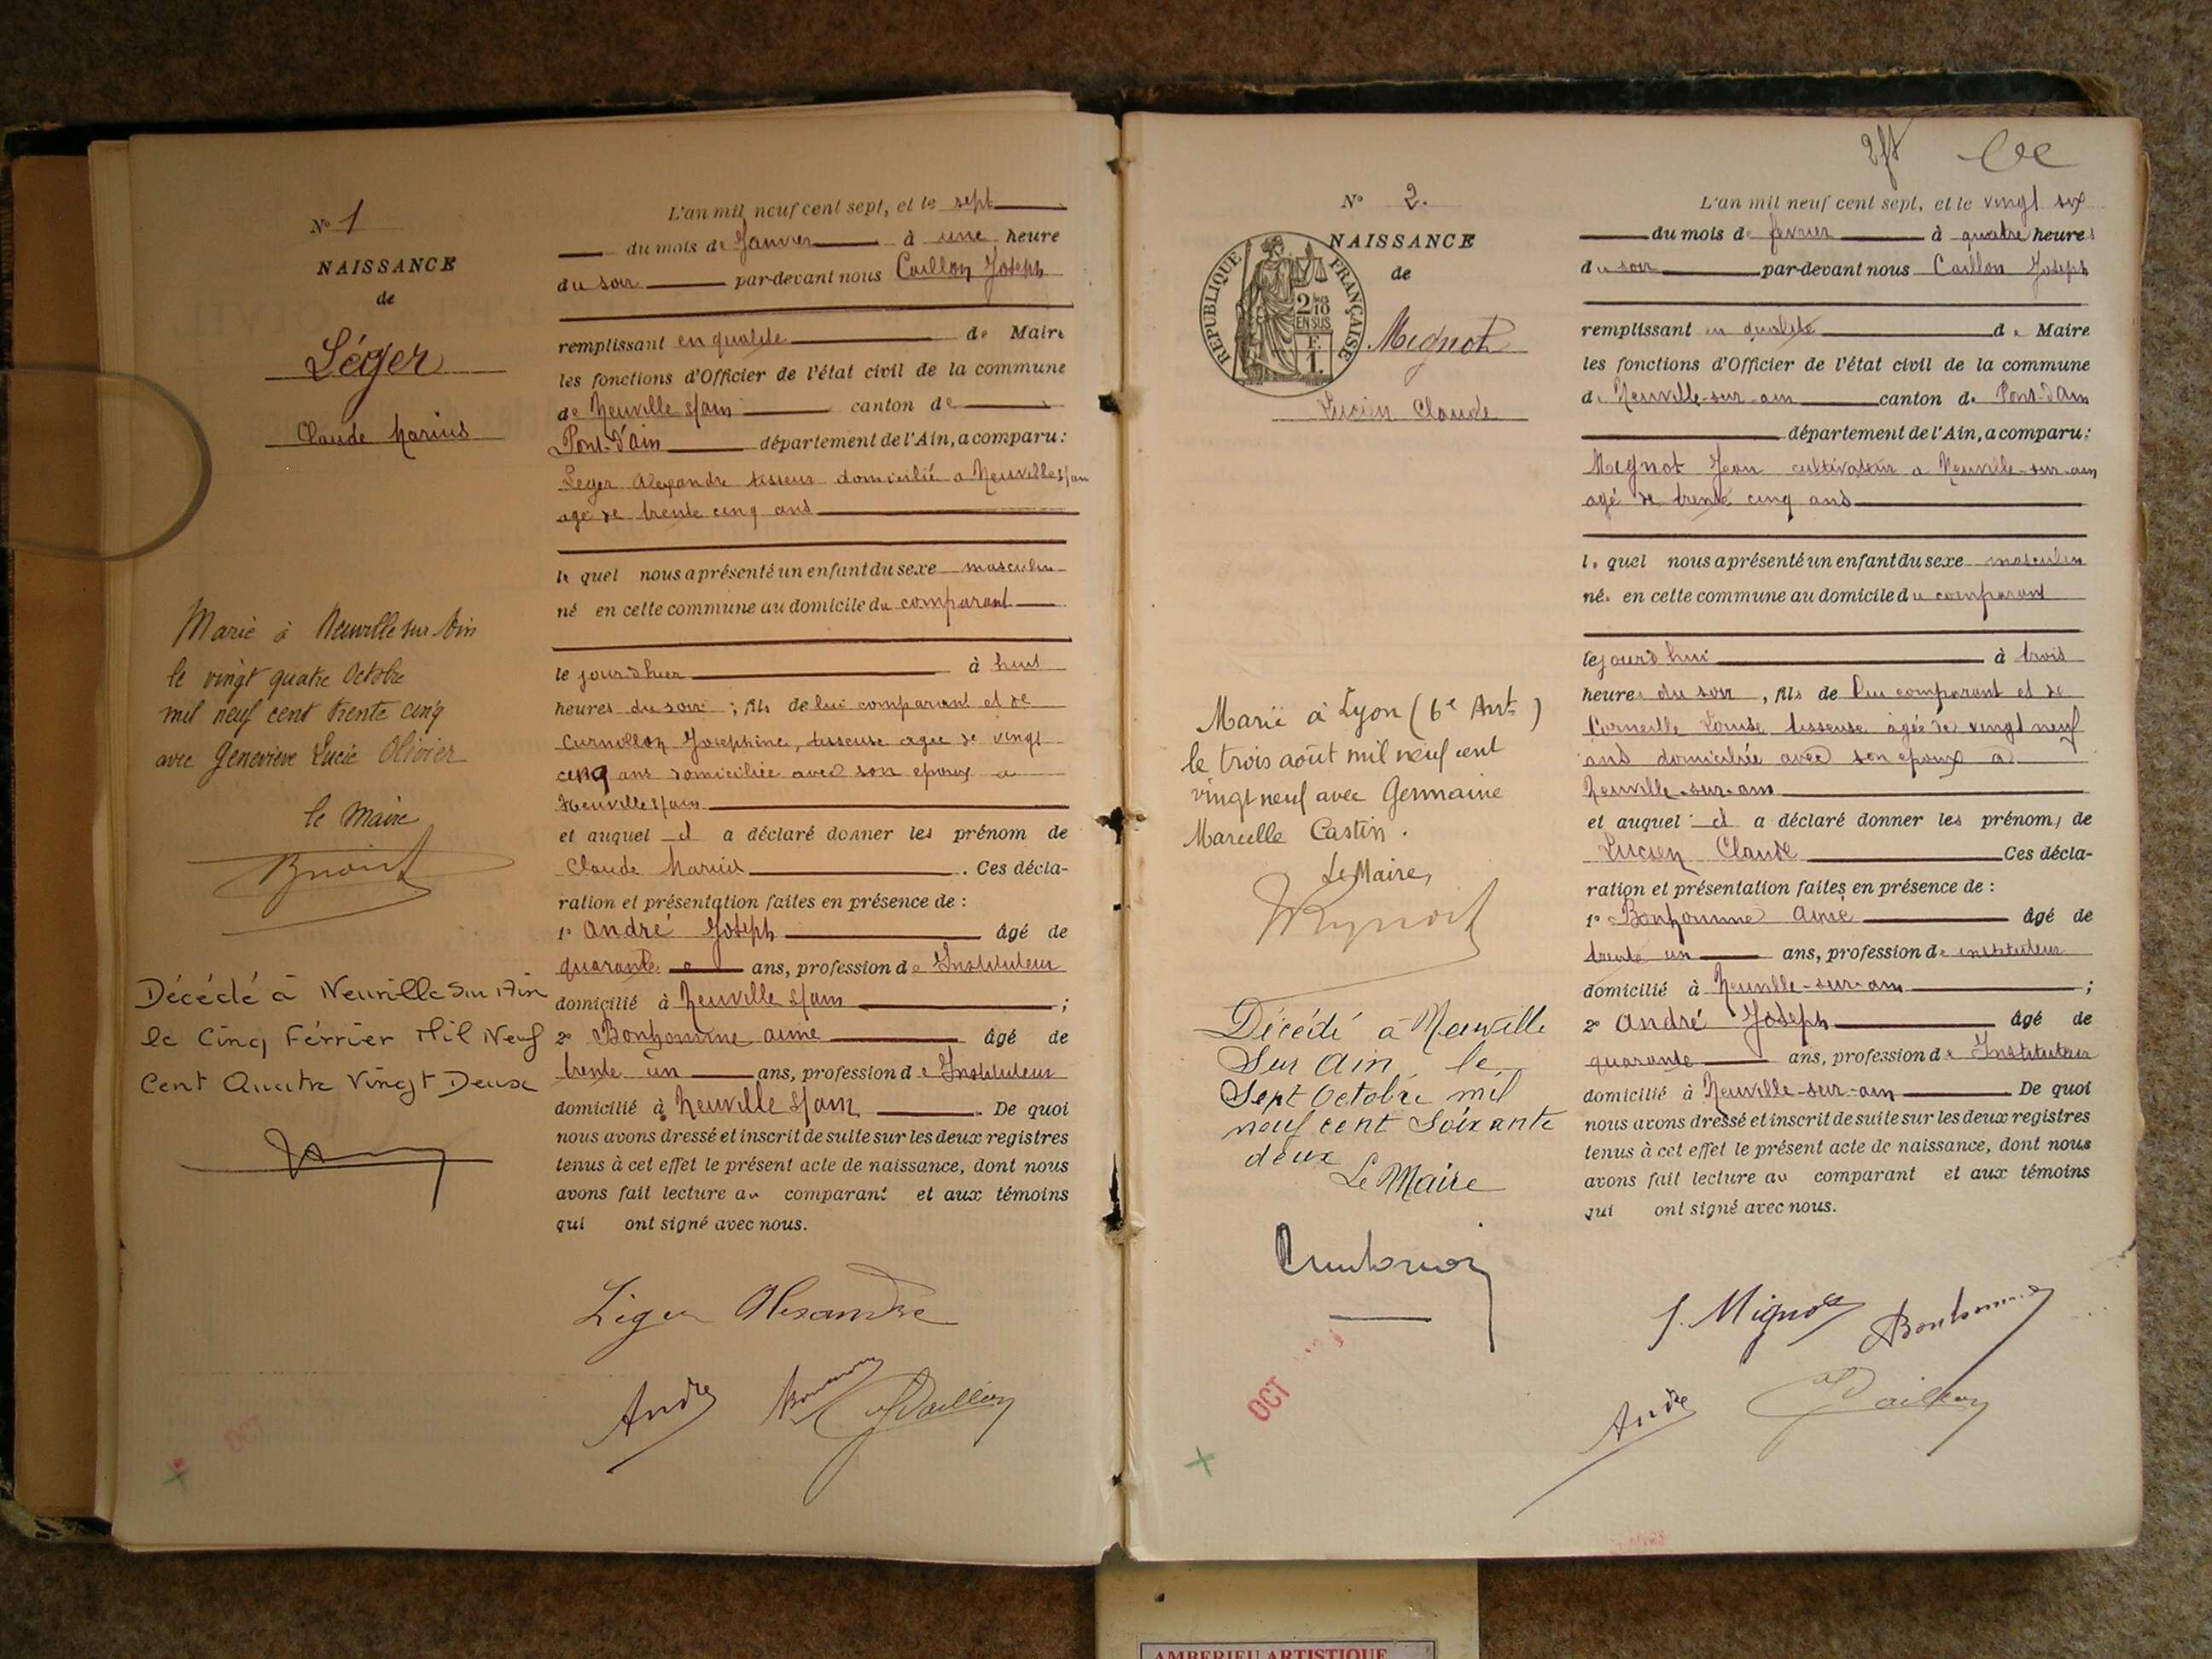 N° 1
NAISSANCE
de
Léger
Claude Marius
Marié à Neuville sur Ain
le vingt quatre Octobre
mil neuf cent trente cinq
avec Geneviève Lucie Olivier
le Maire
Décédé à Neuville Sur Ain
le Cinq Février Mil Neuf
Cent Quatre Vingt Deux
L'an mil neuf cent sept, et le sept
du mois de Janvier à une heure
du soir par-devant nous Caillon Joseph
remplissant en qualité de Maire
les fonctions d'Officier de l'état civil de la commune
de Neuville s/ain canton de
Pont-d'Ain département de l'Ain, a comparu :
Léger Alexandre tisseur domicilié a Neuville s/ain
agé de trente cinq ans
le quel nous a présenté un enfant du sexe masculin
né en cette commune au domicile du comparant
le jour d'hier à huit
heures du soir ; fils de lui comparant et de
Curnillon Joséphine, tisseuse agée de vingt
cinq ans domiciliée avec son epoux a
Neuville s/ain
et auquel il a déclaré donner les prénom de
Claude Marius . Ces décla-
ration et présentation faites en présence de :
1° André Joseph âgé de
quarante ans, profession de Instituteur
domicilié à Neuville s/ain ;
2° Bonhomme aimé âgé de
trente un ans, profession de Instituteur
domicilié à Neuville s/ain . De quoi
nous avons dressé et inscrit de suite sur les deux registres
tenus à cet effet le présent acte de naissance, dont nous
avons fait lecture au comparant et aux témoins
qui ont signé avec nous.
Léger Alexandre
André
Caillon
OCT
2f
N° 2.
NAISSANCE
de
REPUBLIQUE FRANÇAISE
2/10
EN SUS
Mignot
Lucien Claude
Marié à Lyon (6e Arrt)
le trois août mil neuf cent
vingt neuf avec Germaine
Marcelle Castin.
Le Maire,
Décédé à Neuville
Sur Ain, le
Sept Octobre mil
neuf cent Soixante
deux
Le Maire
OCT
L'an mil neuf cent sept, et le vingt six
du mois de fevrier à quatre heures
du soir par-devant nous Caillon Joseph
remplissant en qualité de Maire
les fonctions d'Officier de l'état civil de la commune
de Neuville-sur-ain canton de Pont-d'Ain
département de l'Ain, a comparu :
Mignot Jean cultivateur a Neuville-sur-ain
agé de trente cinq ans
le quel nous a présenté un enfant du sexe masculin
né en cette commune au domicile du comparant
le jourd'hui à trois
heures du soir , fils de lui comparant et de
Corneille Louise tisseuse agée de vingt neuf
ans domiciliée avec son epoux a
Neuville-sur-ain
et auquel il a déclaré donner les prénoms de
Lucien Claude Ces décla-
ration et présentation faites en présence de :
1° Bonhomme aimé âgé de
trente un ans, profession de instituteur
domicilié à Neuville-sur-ain ;
2° André Joseph âgé de
quarante ans, profession de Instituteur
domicilié à Neuville-sur-ain De quoi
nous avons dressé et inscrit de suite sur les deux registres
tenus à cet effet le présent acte de naissance, dont nous
avons fait lecture au comparant et aux témoins
qui ont signé avec nous.
J. Mignot Bonhomme
André Caillon
AMBERIEU ARTISTIQUE